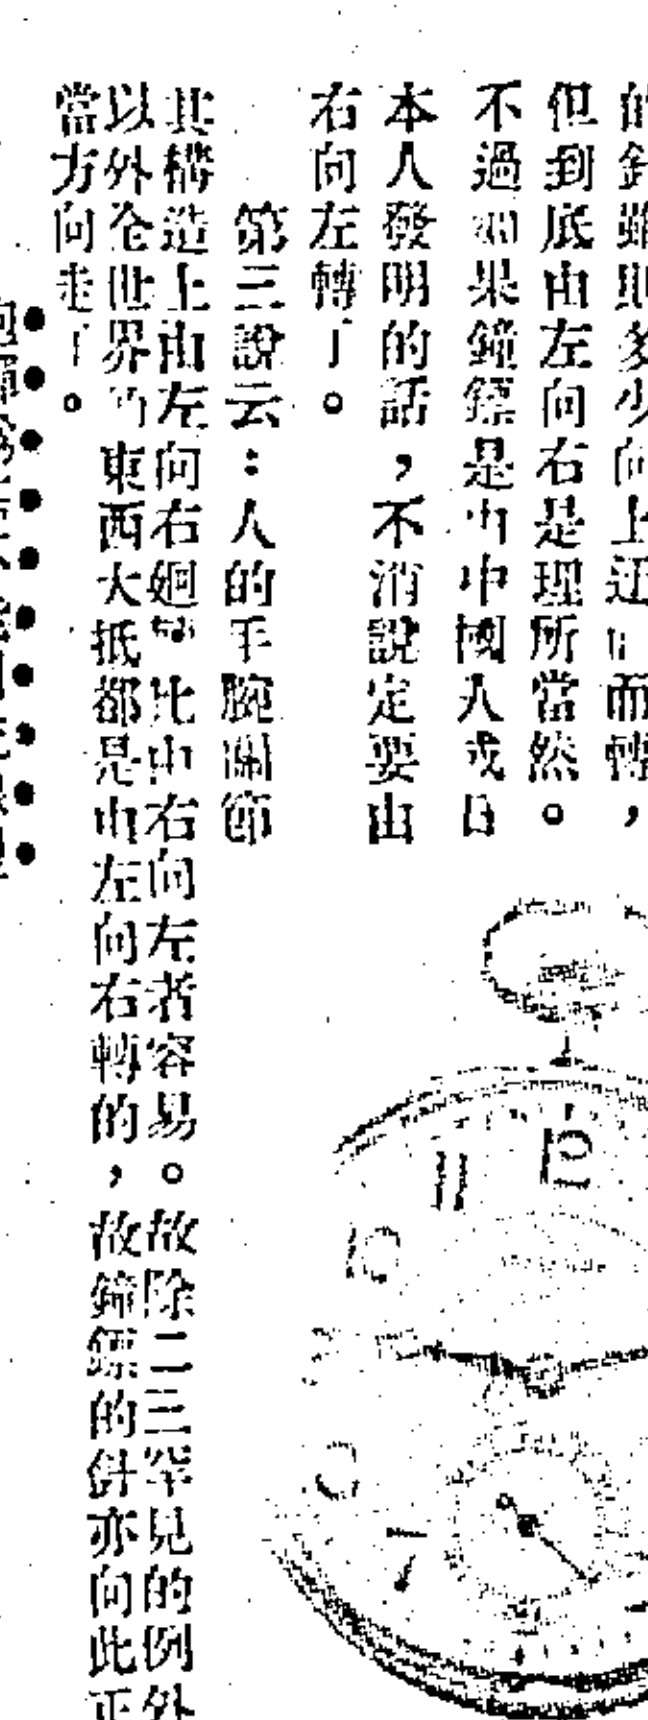 的針雖則多少向上迂而轉，
但到底由左向右是理所當然。
不過如果鐘鏢是由中國人或日
本人發明的話，不消說定要由
右向左轉了。
第三說云：人的手腕關節
其構造上由左向右廻轉比由右向左者容易。故除二三罕見的例外
以外全世界的東西大抵都是由左向右轉的，故鐘鏢的針亦向此正
當方向走了。
12
11
10